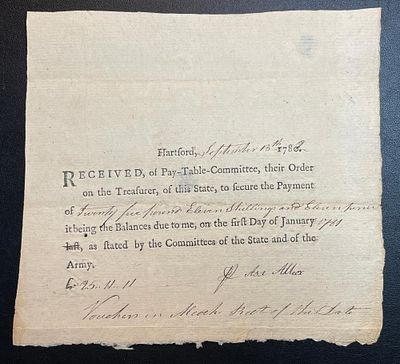 Hartford, September 13th 1782.
RECEIVED, of Pay-Table-Committee, their Order
on the Treasurer, of this State, to secure the Payment
of Twenty five pound Eleven Shillings and Eleven pence
it being the Balances due to me, on the first Day of January 1781
last, as stated by the Committees of the State and of the
Army.
£ 25..11..11
Vouchers in Rect of this Date